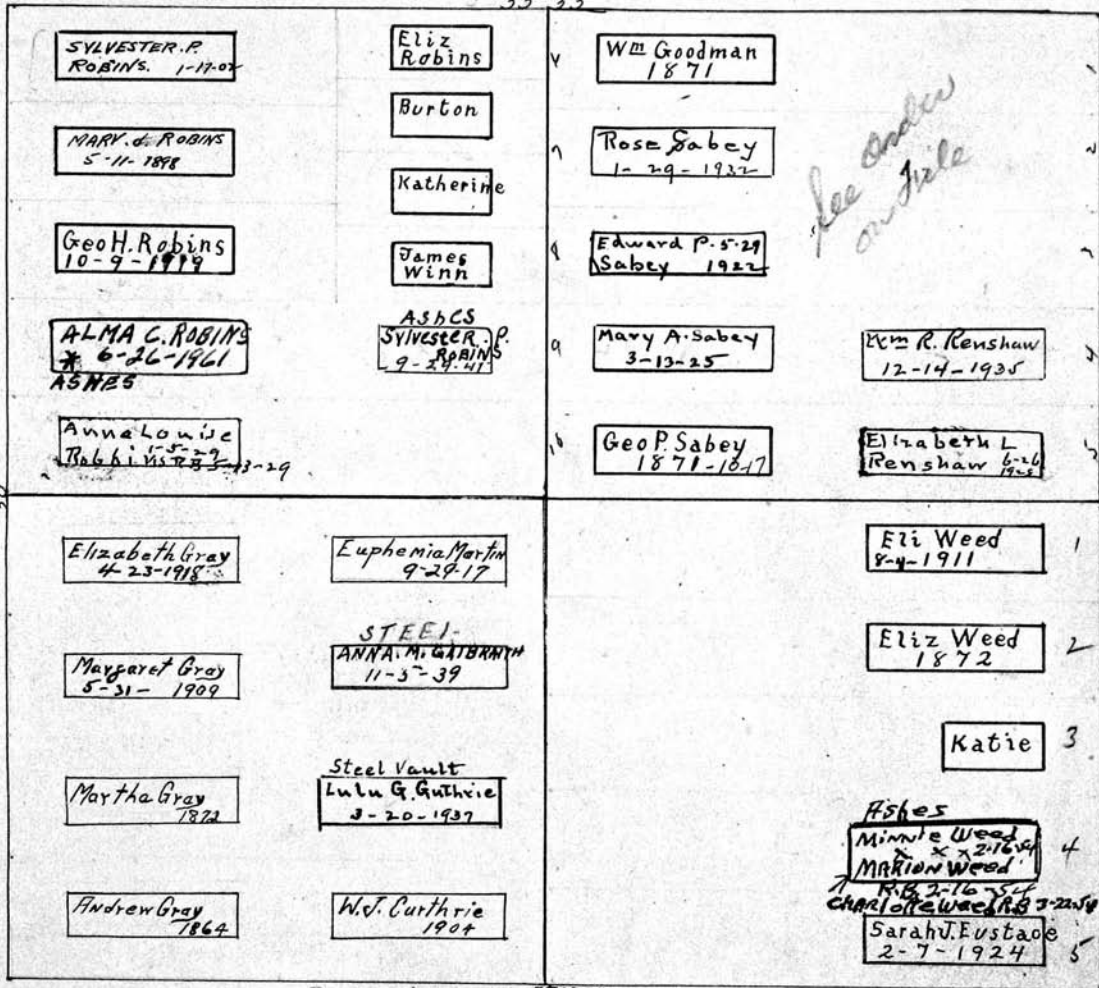 33 33
SYLVESTER. P.
ROBINS. 1-17-02
MARY. d. ROBINS
5-11-1898
Geo H. Robins
10-9-1919
ALMA C. ROBINS
* 6-26-1961
ASHES
Anna Louise
1-5-29
Eliz
Robins
Burton
Katherine
James
Winn
AShCS
SYLVESTER. P.
ROBINS
9-29-41
Wm Goodman
1871
7
Rose Sabey
1-29-1932
8
Edward P. 5-29
Sabey 1922
9
Mary A. Sabey
3-13-25
10
Geo P. Sabey
1871-10-17
See order
on File
1
2
3
Wm R. Renshaw
12-14-1935
4
Elizabeth L
Renshaw 6-26
5
Elizabeth Gray
4-23-1918
Margaret Gray
5-31- 1909
Martha Gray
1872
Andrew Gray
1864
Euphemia Martin
9-29-17
STEEL
ANNA. M. GALBRAITH
11-5-39
Steel Vault
Lulu G. Guthrie
3-20-1937
W. J. Curthrie
1904
Eli Weed
8-4-1911
1
Eliz Weed
1872
2
Katie
3
Ashes
Minnie Weed
x x x 2-16-54
MARION Weed
4
R.B 2-16-54
CHARlotte Weed R.B 3-22-54
Sarah J. Eustace
2-7-1924
5